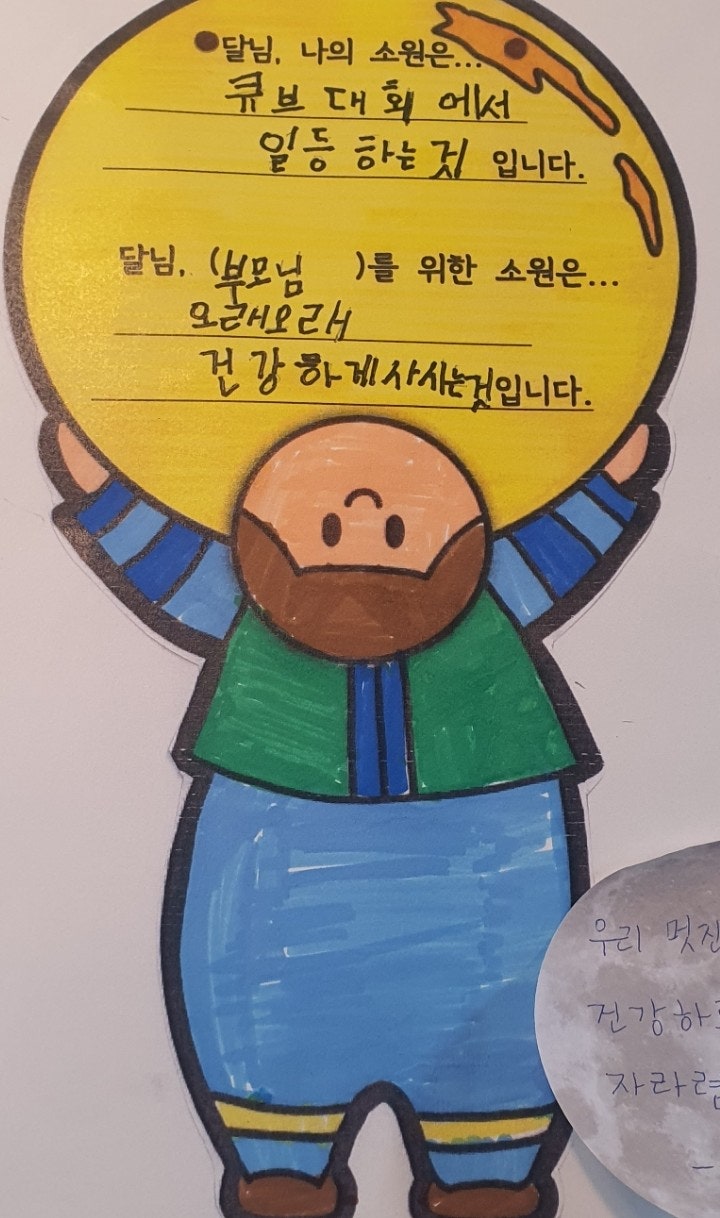 달님, 나의 소원은...
큐브 대회 에서
일등 하는 것 입니다.
달님, (부모님 )를 위한 소원은...
오래오래
건강하게사시는것입니다.
우리 멋진
건강하
자라렴